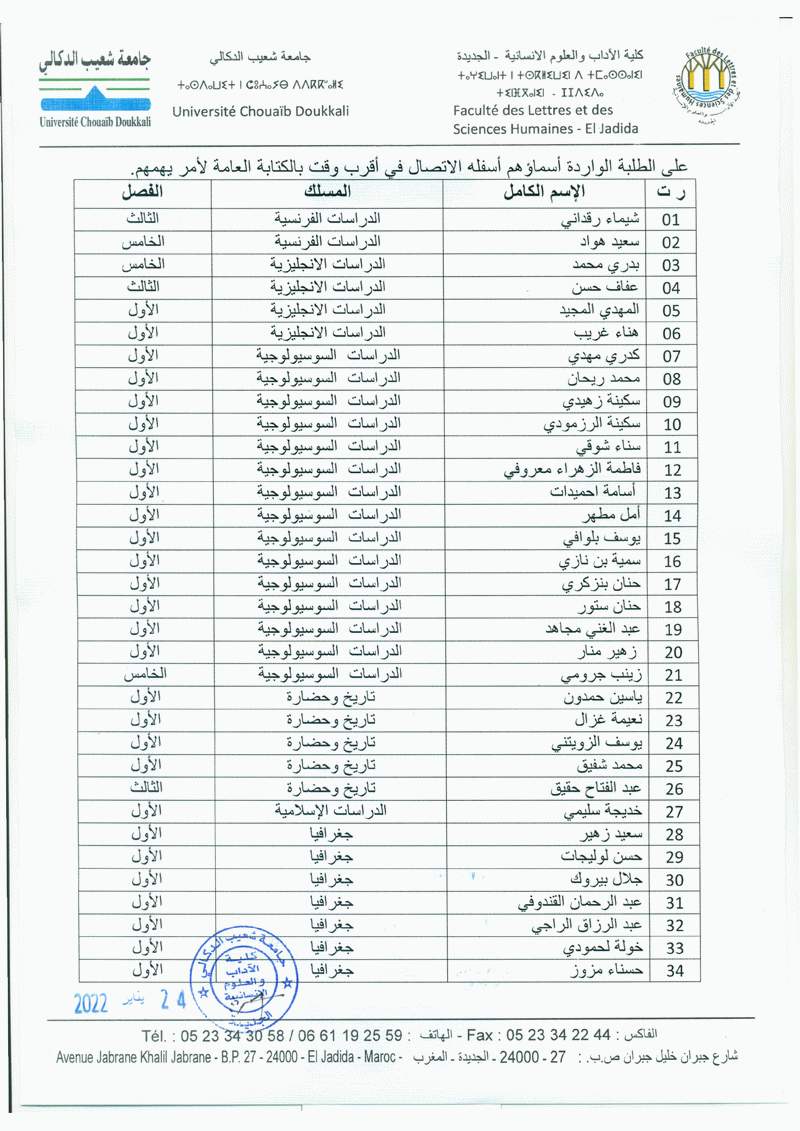 جامعة شعيب الدكالي
Université Chouaïb Doukkali
جامعة شعيب الدكالي
Université Chouaïb Doukkali
كلية الآداب والعلوم الانسانية - الجديدة
Faculté des Lettres et des
Sciences Humaines - El Jadida
على الطلبة الواردة أسماؤهم أسفله الاتصال في أقرب وقت بالكتابة العامة لأمر يهمهم.
ر ت الإسم الكامل المسلك الفصل
01 شيماء رقداني الدراسات الفرنسية الثالث
02 سعيد هواد الدراسات الفرنسية الخامس
03 بدري محمد الدراسات الانجليزية الخامس
04 عفاف حسن الدراسات الانجليزية الثالث
05 المهدي المجيد الدراسات الانجليزية الأول
06 هناء غريب الدراسات الانجليزية الأول
07 كدري مهدي الدراسات السوسيولوجية الأول
08 محمد ريحان الدراسات السوسيولوجية الأول
09 سكينة زهيدي الدراسات السوسيولوجية الأول
10 سكينة الرزمودي الدراسات السوسيولوجية الأول
11 سناء شوقي الدراسات السوسيولوجية الأول
12 فاطمة الزهراء معروفي الدراسات السوسيولوجية الأول
13 أسامة احميدات الدراسات السوسيولوجية الأول
14 أمل مطهر الدراسات السوسيولوجية الأول
15 يوسف بلوافي الدراسات السوسيولوجية الأول
16 سمية بن نازي الدراسات السوسيولوجية الأول
17 حنان بنزكري الدراسات السوسيولوجية الأول
18 حنان ستور الدراسات السوسيولوجية الأول
19 عبد الغني مجاهد الدراسات السوسيولوجية الأول
20 زهير منار الدراسات السوسيولوجية الأول
21 زينب جرومي الدراسات السوسيولوجية الخامس
22 ياسين حمدون تاريخ وحضارة الأول
23 نعيمة غزال تاريخ وحضارة الأول
24 يوسف الزويتني تاريخ وحضارة الأول
25 محمد شفيق تاريخ وحضارة الأول
26 عبد الفتاح حقيق تاريخ وحضارة الثالث
27 خديجة سليمي الدراسات الإسلامية الأول
28 سعيد زهير جغرافيا الأول
29 حسن لوليجات جغرافيا الأول
30 جلال بيروك جغرافيا الأول
31 عبد الرحمان القندوفي جغرافيا الأول
32 عبد الرزاق الراجي جغرافيا الأول
33 خولة لحمودي جغرافيا الأول
34 حسناء مزوز جغرافيا الأول
جامعة شعيب الدكالي
كلية
الآداب
والعلوم
الإنسانية
الجديدة
24 يناير 2022
الفاكس : Fax : 05 23 34 22 44 - الهاتف : Tél. : 05 23 34 30 58 / 06 61 19 25 59
شارع جبران خليل جبران ص.ب. : 27 - 24000 - الجديدة - المغرب - Avenue Jabrane Khalil Jabrane - B.P. 27 - 24000 - El Jadida - Maroc